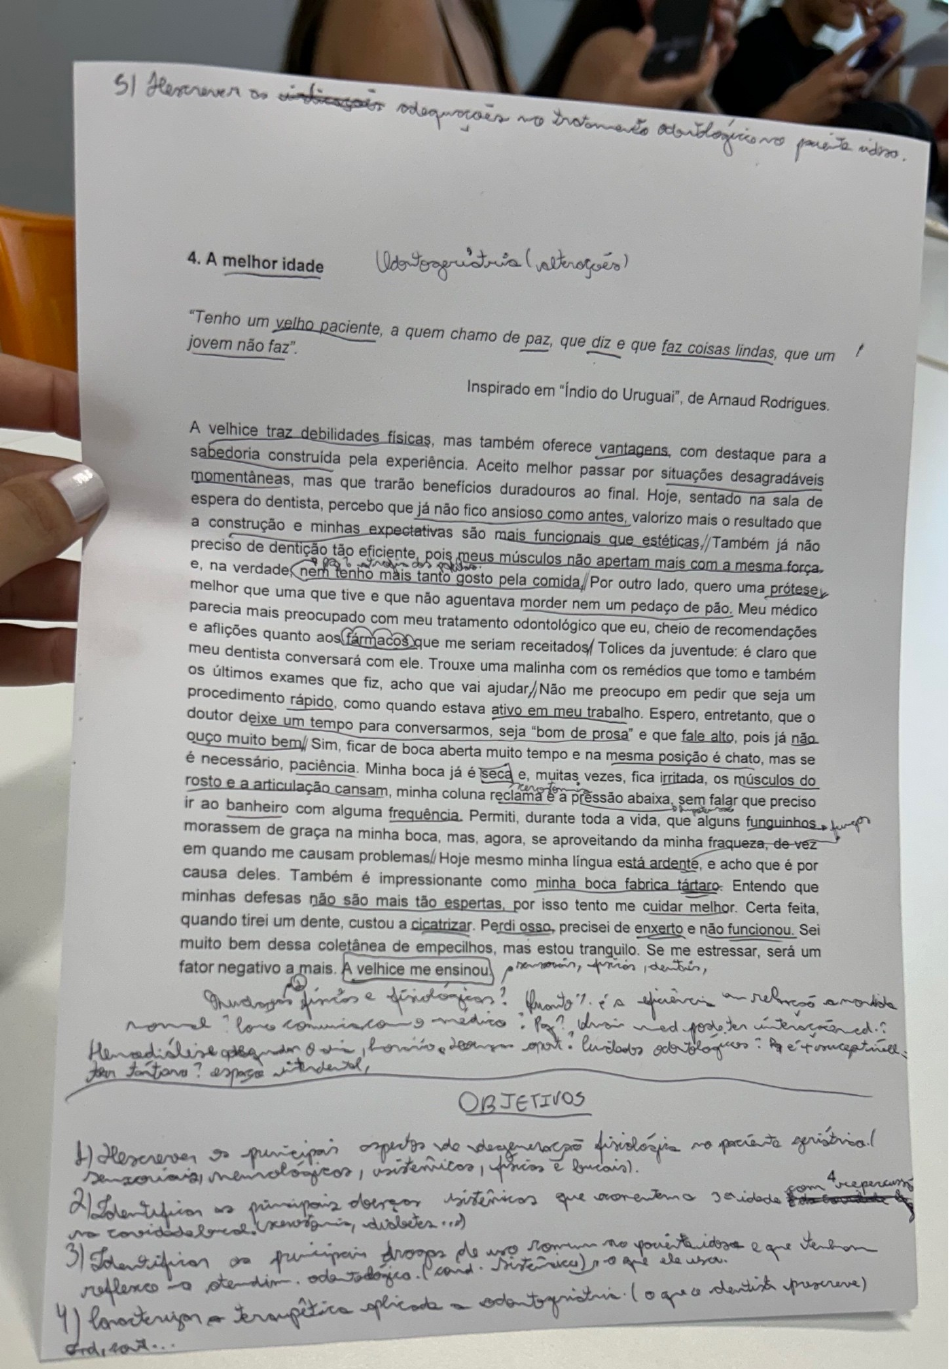 5) Descrever as adequações no tratamento odontológico no paciente idoso.
4. A melhor idade
Odontogeriatria (alterações)
“Tenho um velho paciente, a quem chamo de paz, que diz e que faz coisas lindas, que um
jovem não faz”.
Inspirado em “Índio do Uruguai”, de Arnaud Rodrigues.
A velhice traz debilidades físicas, mas também oferece vantagens, com destaque para a
sabedoria construída pela experiência. Aceito melhor passar por situações desagradáveis
momentâneas, mas que trarão benefícios duradouros ao final. Hoje, sentado na sala de
espera do dentista, percebo que já não fico ansioso como antes, valorizo mais o resultado que
a construção e minhas expectativas são mais funcionais que estéticas. Também já não
preciso de dentição tão eficiente, pois meus músculos não apertam mais com a mesma força,
e, na verdade, nem tenho mais tanto gosto pela comida. Por outro lado, quero uma prótese
melhor que uma que tive e que não aguentava morder nem um pedaço de pão. Meu médico
parecia mais preocupado com meu tratamento odontológico que eu, cheio de recomendações
e aflições quanto aos fármacos que me seriam receitados. Tolices da juventude: é claro que
meu dentista conversará com ele. Trouxe uma malinha com os remédios que tomo e também
os últimos exames que fiz, acho que vai ajudar. Não me preocupo em pedir que seja um
procedimento rápido, como quando estava ativo em meu trabalho. Espero, entretanto, que o
doutor deixe um tempo para conversarmos, seja “bom de prosa” e que fale alto, pois já não
ouço muito bem. Sim, ficar de boca aberta muito tempo e na mesma posição é chato, mas se
é necessário, paciência. Minha boca já é seca e, muitas vezes, fica irritada, os músculos do
rosto e a articulação cansam, minha coluna reclama e a pressão abaixa, sem falar que preciso
ir ao banheiro com alguma frequência. Permiti, durante toda a vida, que alguns funguinhos
morassem de graça na minha boca, mas, agora, se aproveitando da minha fraqueza, de vez
em quando me causam problemas. Hoje mesmo minha língua está ardente, e acho que é por
causa deles. Também é impressionante como minha boca fabrica tártaro. Entendo que
minhas defesas não são mais tão espertas, por isso tento me cuidar melhor. Certa feita,
quando tirei um dente, custou a cicatrizar. Perdi osso, precisei de enxerto e não funcionou. Sei
muito bem dessa coletânea de empecilhos, mas estou tranquilo. Se me estressar, será um
fator negativo a mais. A velhice me ensinou.
sensoriais, físicos, dentais,
Mudanças físicas e fisiológicas? Quanto % é a eficiência em relação a mordida
normal? Como comunicar com o médico? Pq? Quais med. pode ter interação
Hemodiálise horário, Cuidados odontológicos? Pq é + susceptível
tem tártaro? espaço interdental,
OBJETIVOS
1) Descrever os principais aspectos de degeneração fisiológica no paciente geriátrico. (
sensoriais, neurológicos, sistêmicos, físicos e bucais).
2) Identificar as principais doenças sistêmicas que acometem a 3ª idade com repercussão
na cavidade bucal. (xerostomia, diabetes...)
3) Identificar as principais drogas de uso comum no paciente idoso e que tenham
reflexo no atendim. odontológico. (cond. sistêmica), o que ele usa.
4) Caracterizar a terapêutica aplicada a odontogeriatria. (o que o dentista prescreve)